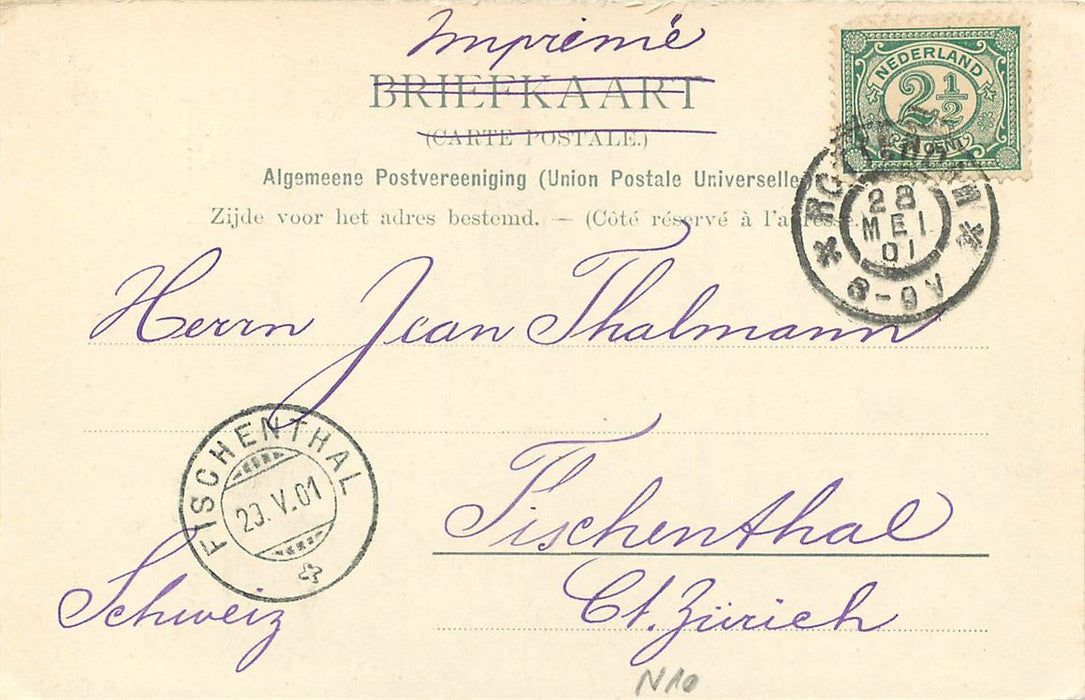 Imprimé
BRIEFKAART
(CARTE POSTALE.)
Algemeene Postvereeniging (Union Postale Universelle
Zijde voor het adres bestemd. — (Côté réservé à l'adresse
NEDERLAND
2½
28
MEI
01
8-9V
Herrn Jean Thalmann
FISCHENTHAL
23.V.01
Fischenthal
Schweiz
Ct. Zürich
N10